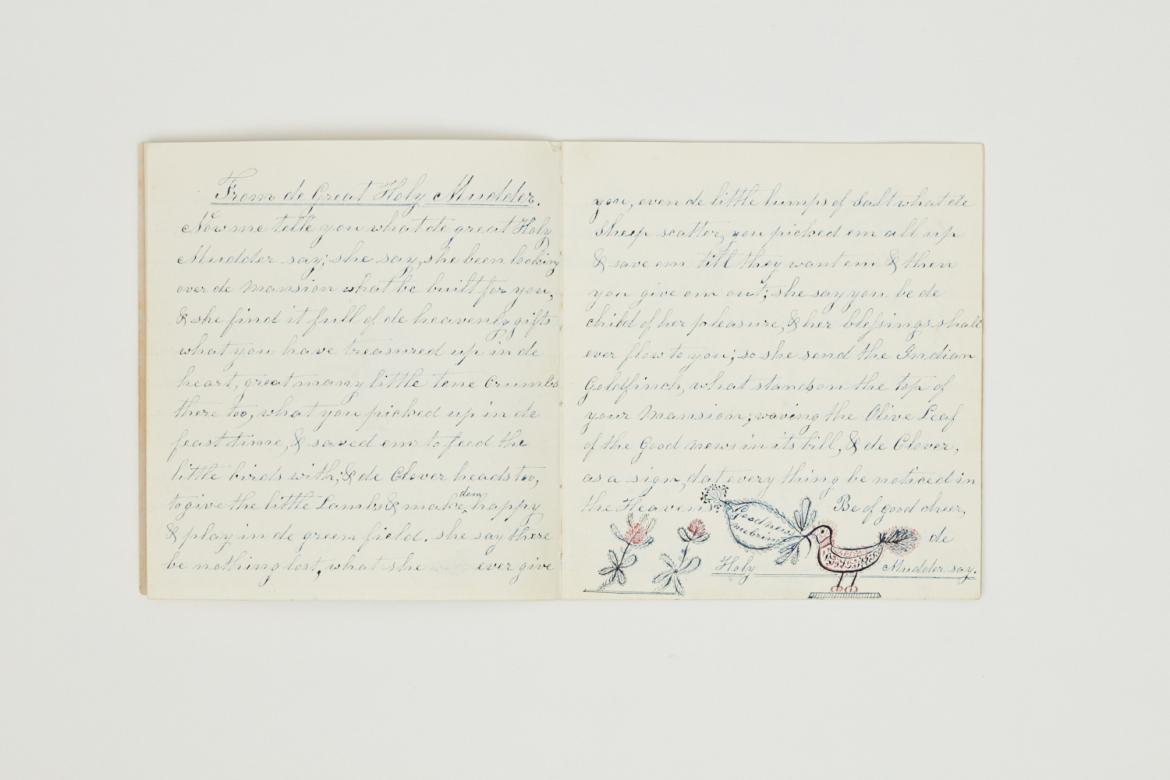 From de Great Holy Mudder.
Now me tell you what de great Holy
Mudder say; she say, she been looking
over de Mansion what be built for you,
& she find it full of de heavenly gifts
what you have treasured up in de
heart, great many little tene Crumbs
there too, what you picked up in de
feast time, & saved em to feed the
little birds with; & de Clover heads too,
to give the little Lambs & make dem happy
& play in de green field. she say there
be nothing lost, what she ever give
you, even de little lumps of Salt what de
Sheep scatter, you picked em all up
& save em till they want em & then
you give em out; she say you be de
child of her pleasure, & her blessings shall
ever flow to you; so she send the Indian
Goldfinch, what stands on the top of
your Mansion; waving the Olive Leaf
of the Good news in its bill, & de Clover,
as a sign, dat every thing be noticed in
the Heavens. Be of good cheer,
Good news
me bring
de
Holy Mudder say.